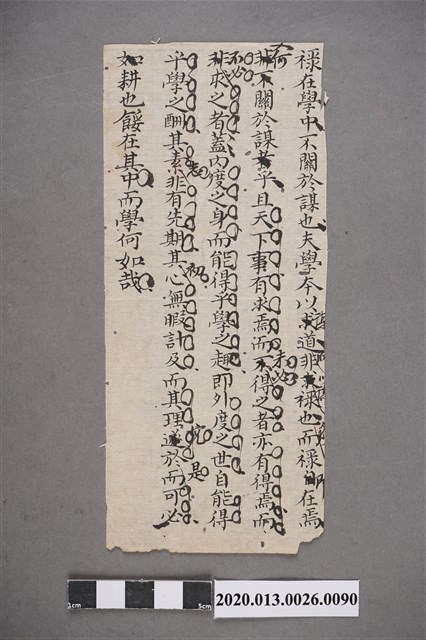 祿在學中不關於謀也夫學本以求道非求祿也而祿自在焉
何
非不關於謀者乎且天下事有求焉而不得之者亦有得焉而
未必
不必
非求之者蓋內度之身而能得乎學之趣即外度之世自能得
乎學之酬其素非有先期其心無暇計及而其理道於而可必
初
是
如耕也餒在其中而學何如哉
1cm
5cm
2020.013.0026.0090